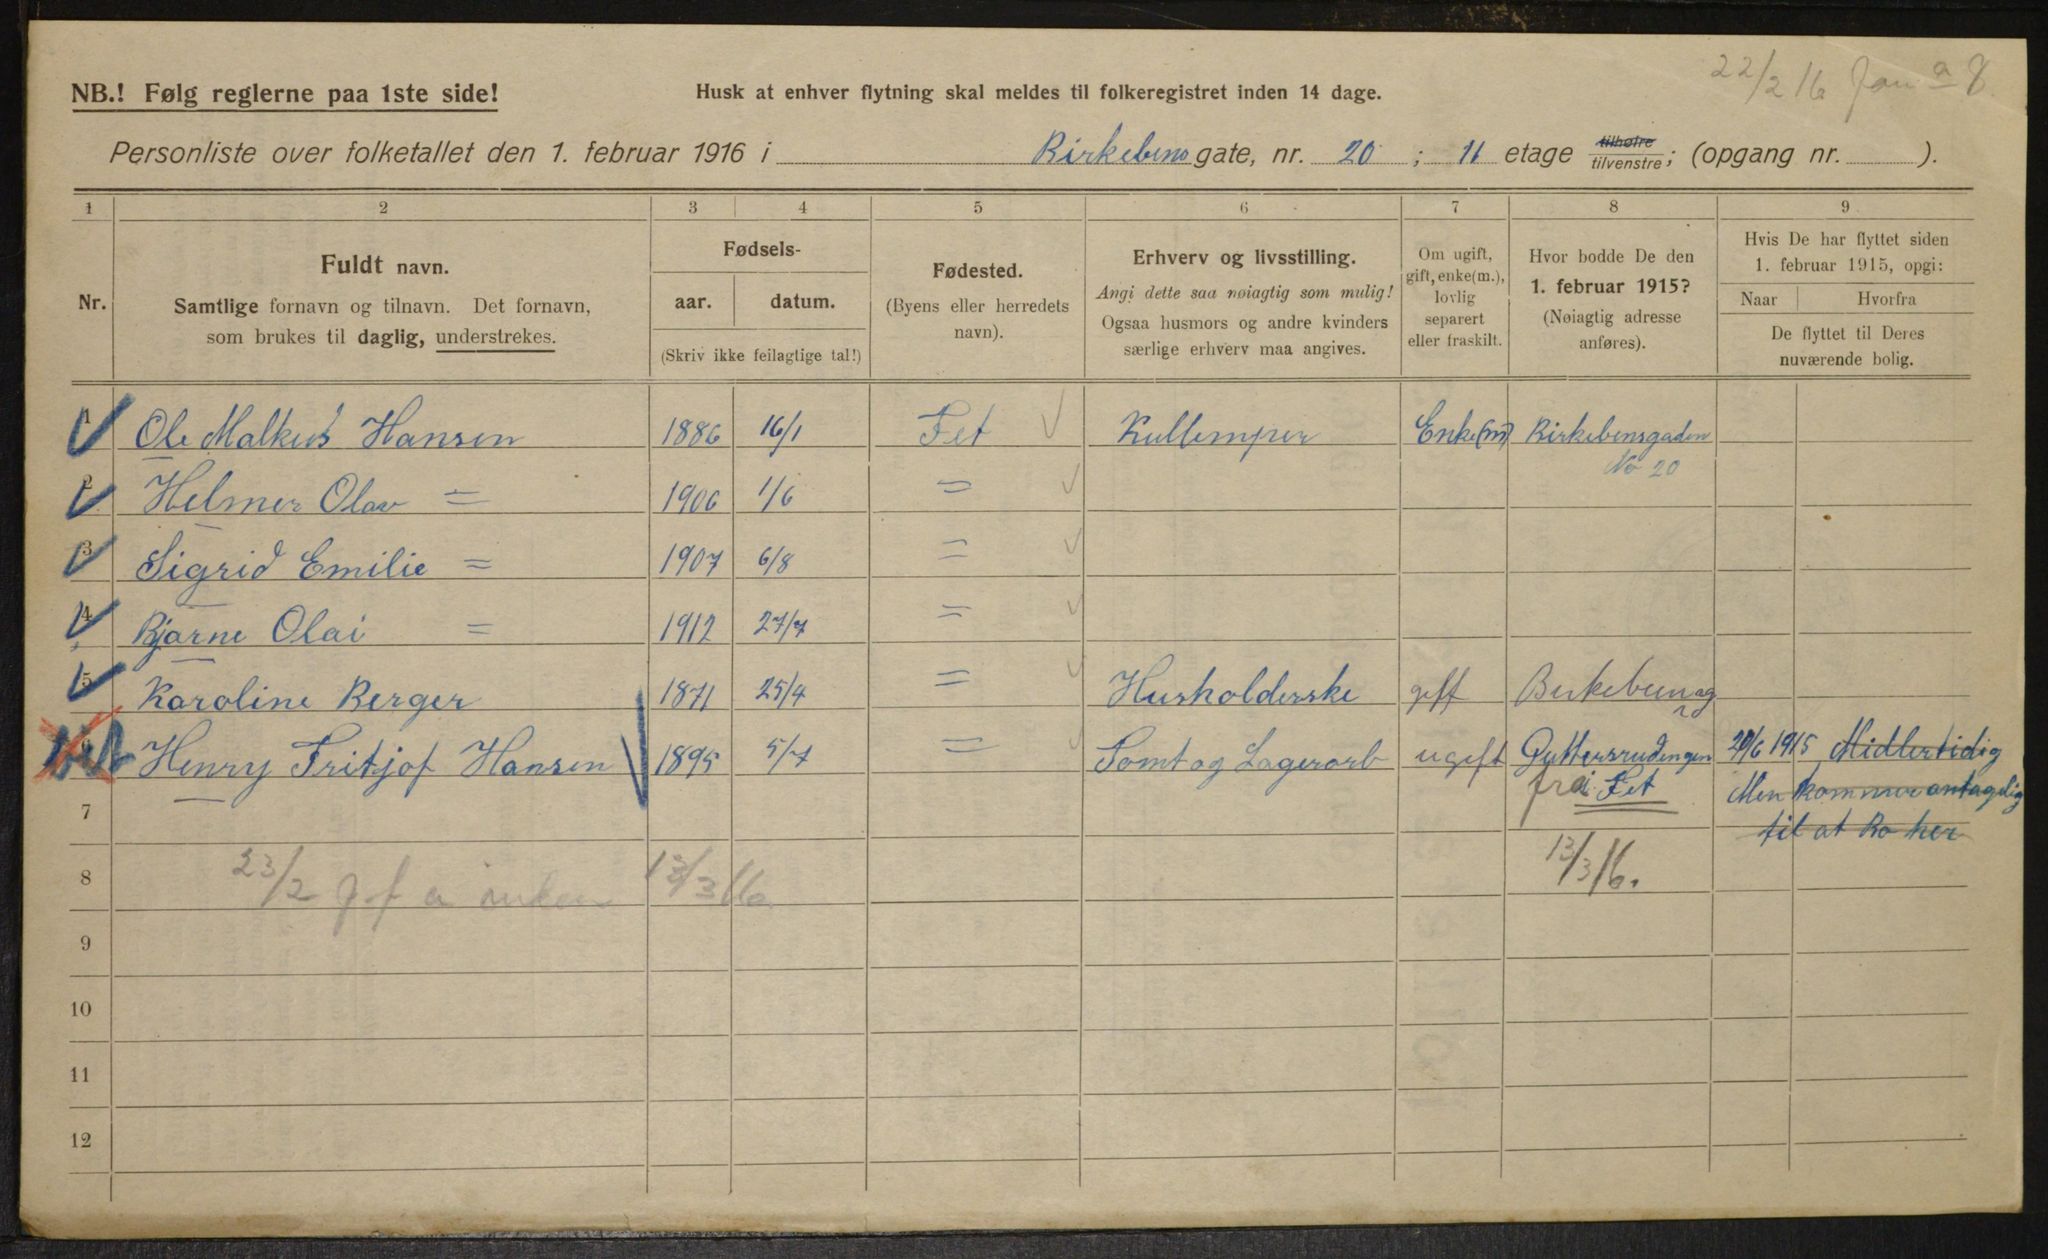 22/2 16
NB.! Følg reglerne paa 1ste side!
Husk at enhver flytning skal meldes til folkeregistret inden 14 dage.
Personliste over folketallet den 1. februar 1916 i Birkebens gate, nr. 20 ; 11 etage tilhøire tilvenstre; (opgang nr. ).
1 2 3 4 5 6 7 8 9
Nr.
Fuldt navn.
Samtlige fornavn og tilnavn. Det fornavn,
som brukes til daglig, understrekes.
Fødsels-
aar. datum.
(Skriv ikke feilagtige tal!)
Fødested.
(Byens eller herredets
navn).
Erhverv og livsstilling.
Angi dette saa nøiagtig som mulig!
Ogsaa husmors og andre kvinders
særlige erhverv maa angives.
Om ugift,
gift, enke(m.),
lovlig
separert
eller fraskilt.
Hvor bodde De den
1. februar 1915?
(Nøiagtig adresse
anføres).
Hvis De har flyttet siden
1. februar 1915, opgi:
Naar Hvorfra
De flyttet til Deres
nuværende bolig.
1 Ole Malkus Hansen 1886 16/1 Fet Kullemper Enke(m) Birkebensgaden
No 20
2 Helmer Olav = 1906 1/6 =
3 Sigrid Emilie = 1907 6/8 =
4 Bjarne Olai = 1912 27/7 =
5 Karoline Berger 1871 25/4 = Husholderske gift
6 Henry Fritjof Hansen 1895 5/7 = Tomt og Lagerarb ugift 20/6 1915 Midlertidig
fra Fet Men kommer antagelig
til at Bo her
7
8 23/2 13/3 16 13/3 16.
9
10
11
12